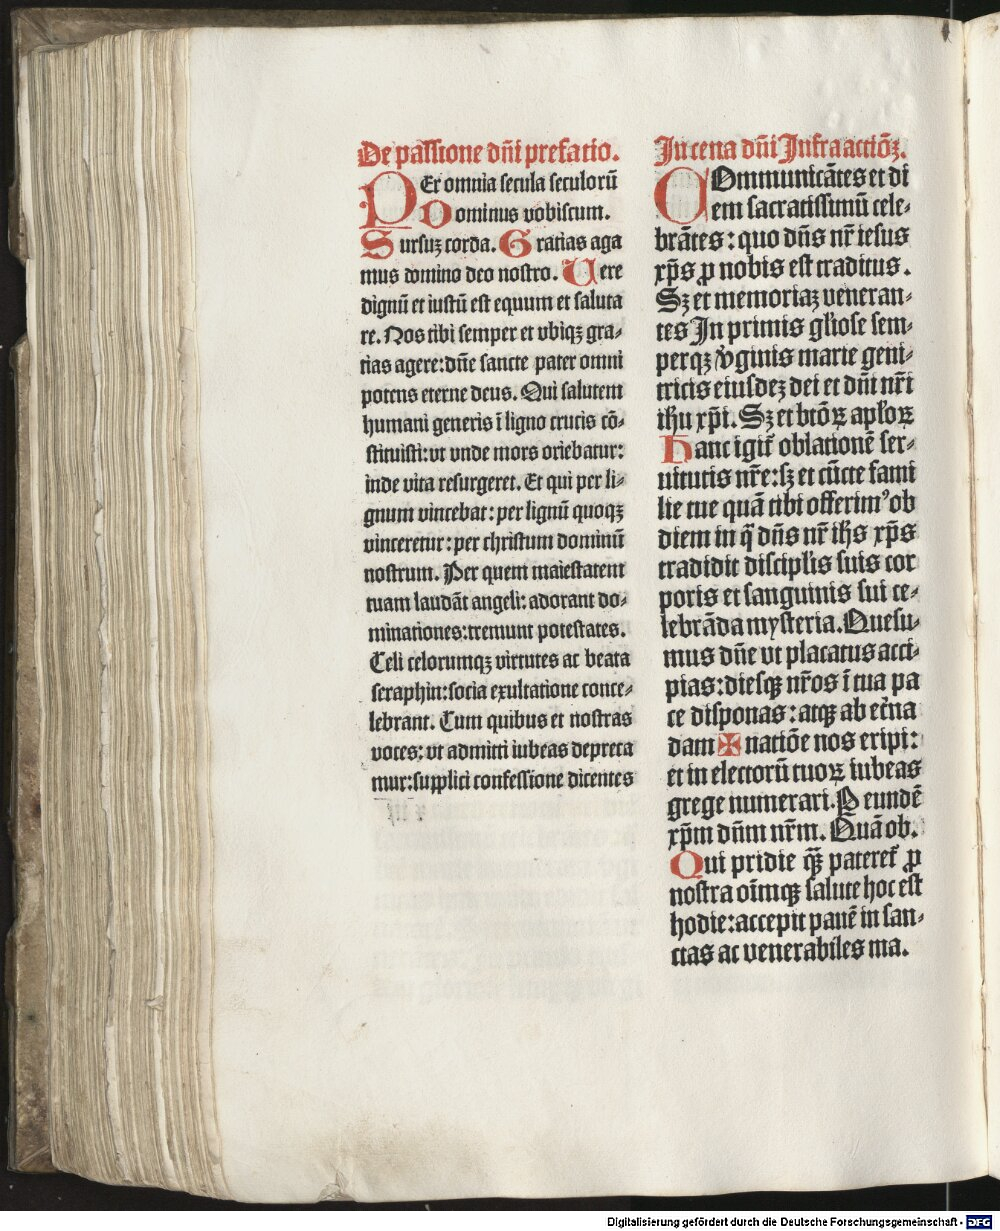 De passione dn̄i prefatio.
PEr omnia secula seculorū
Dominus vobiscum.
Sursuꝫ corda. Gratias aga
mus domino deo nostro. Uere
dignū et iustū est equum et saluta
re. Nos tibi semper et vbiqꝫ gra⸗
tias agere: dn̄e sancte pater omni
potens eterne deus. Qui salutem
humani generis ī ligno crucis cō⸗
stituisti: vt vnde mors oriebatur:
inde vita resurgeret. Et qui per li⸗
gnum vincebat: per lignū quoqꝫ
vinceretur: per christum dominū
nostrum. Per quem maiestatem
tuam laudāt angeli: adorant do⸗
minationes: tremunt potestates.
Celi celorumqꝫ virtutes ac beata
seraphin: socia exultatione conce⸗
lebrant. Cum quibus et nostras
voces: vt admitti iubeas depreca
mur: supplici confessione dicentes
In cena dn̄i Infra acciōꝫ.
COmmunicātes et di
em sacratissimū cele⸗
brātes: quo dn̄s nr̄ iesus
xp̄s ꝓ nobis est traditus.
Sꝫ et memoriaꝫ veneran⸗
tes In primis gl̓iose sem⸗
perqꝫ v̓ginis marie geni⸗
tricis eiusdeꝫ dei et dn̄i nr̄i
ih̄u xp̄i. Sꝫ et btōꝝ apl̓oꝝ
Hanc igit̄ oblationē ser⸗
uitutis nr̄e: sꝫ et cūcte fami
lie tue quā tibi offerim⁹ ob
diem in q̄ dn̄s nr̄ ih̄s xp̄s
tradidit disciplis suis cor
poris et sanguinis sui ce⸗
lebrāda mysteria. Quesu⸗
mus dn̄e vt placatus acci⸗
pias: diesqꝫ nr̄os ī tua pa
ce disponas: atqꝫ ab et̄na
dam ✠ natiōe nos eripi:
et in electorū tuoꝝ iubeas
grege numerari. P̱ eundē
xp̄m dn̄m nr̄m. Quā ob.
Qui pridie qꝫ̄ pateret̄ ꝓ
nostra oīmqꝫ salute hoc est
hodie: accepit panē in san⸗
ctas ac venerabiles ma.
Digitalisierung gefördert durch die Deutsche Forschungsgemeinschaft - DFG